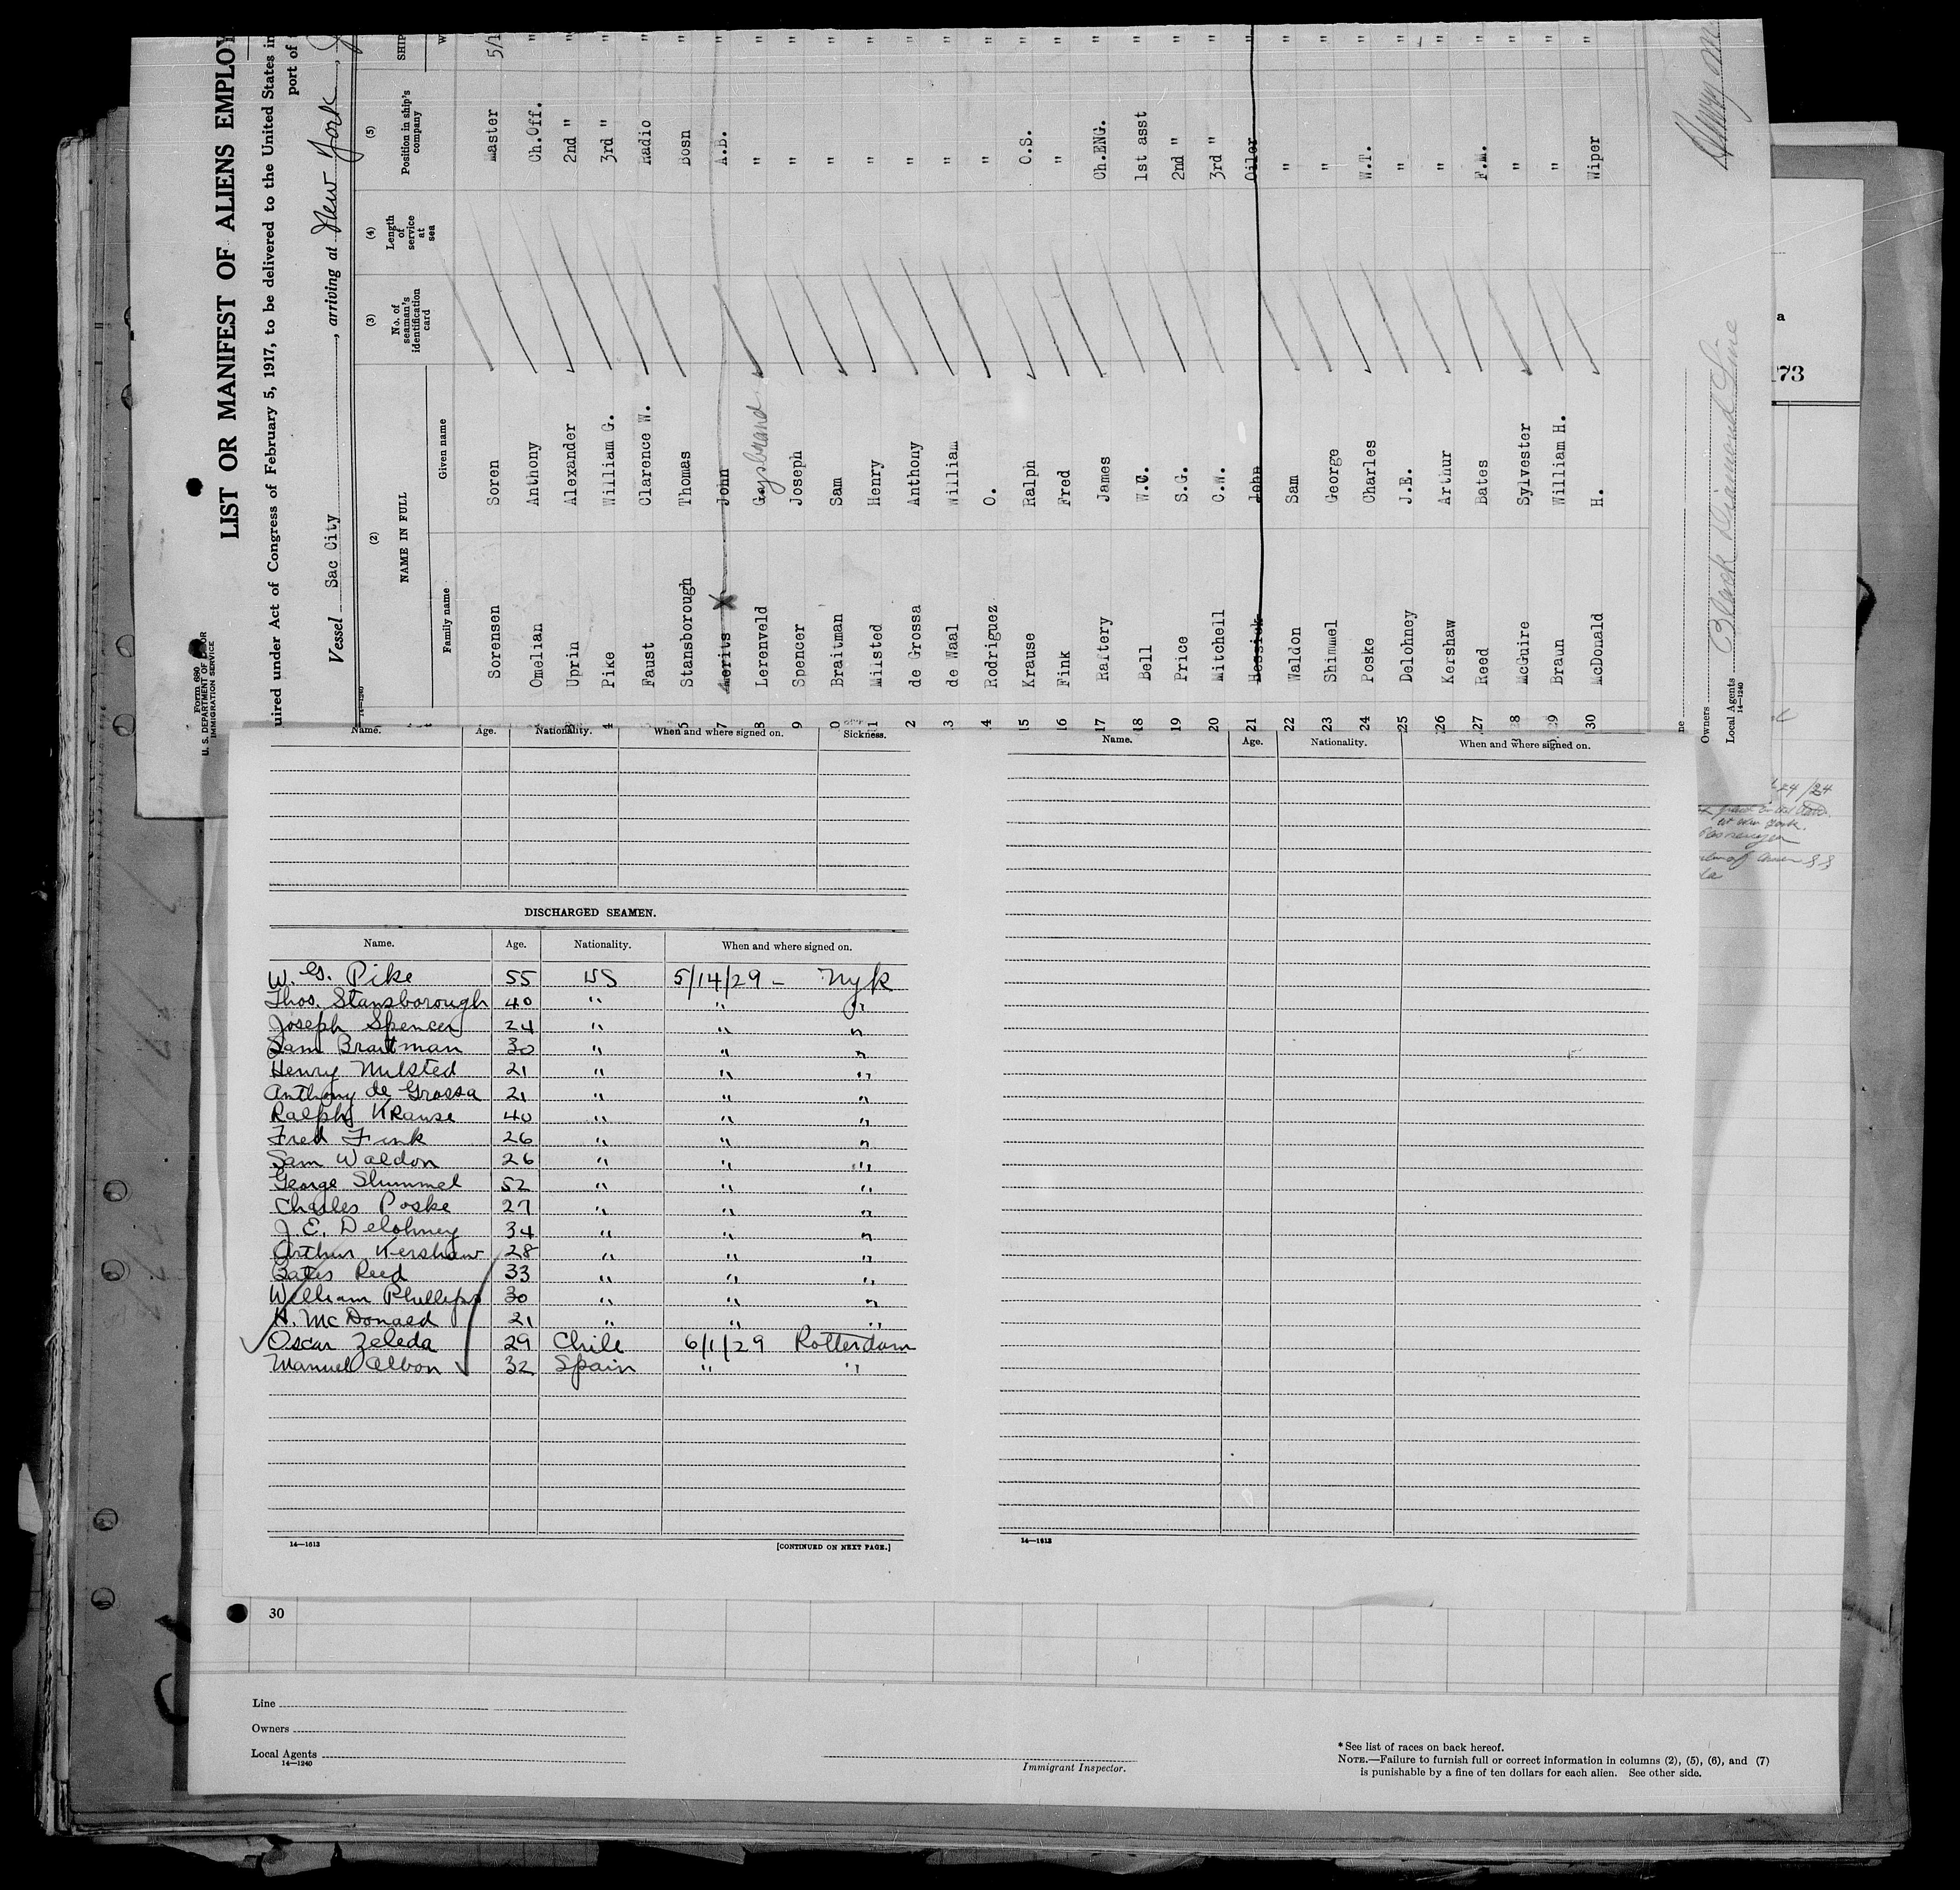 LIST OR MANIFEST OF ALIENS EMPLOY
uired under Act of Congress of February 5, 1917, to be delivered to the United States in
port of
Form 680
U. S. DEPARTMENT OF LABOR
IMMIGRATION SERVICE
Vessel Sac City, arriving at New York,
14—1240
(2) (3) (4) (5)
NAME IN FULL No. of seaman's identification card Length of service at sea Position in ship's company SHIP
Family name Given name W
Sorensen Soren Master 5/1
Omelian Anthony Ch.Off. "
3 Uprin Alexander 2nd " "
4 Pike William G. 3rd " "
Faust Clarence W. Radio "
5 Stansborough Thomas Bosn "
7 Merits X John A.B. "
8 Lerenveld Gysbrand " "
9 Spencer Joseph " "
0 Braitman Sam " "
11 Milsted Henry " "
2 de Grossa Anthony " "
3 de Waal William " "
4 Rodriguez O. " "
15 Krause Ralph O.S. "
16 Fink Fred " "
17 Raftery James Ch.ENG. "
18 Bell W.C. 1st asst "
19 Price S.G. 2nd " "
20 Mitchell C.W. 3rd " "
21 Hessick John Oiler "
22 Waldon Sam " "
23 Shimmel George " "
24 Poske Charles W.T. "
25 Delohney J.E. " "
26 Kershaw Arthur " "
27 Reed Bates F.M. "
28 McGuire Sylvester " "
29 Braun William H. " "
30 McDonald H. Wiper "
ne
Owners
Local Agents Black Diamond Line
14—1240
a
273
24/24
at New York.
Name. Age. Nationality. When and where signed on. Sickness.
DISCHARGED SEAMEN.
Name. Age. Nationality. When and where signed on.
W. G. Pike 55 US 5/14/29 - Nyk
Thos. Stansborough 40 " " "
Joseph Spencer 24 " " "
Sam Braitman 30 " " "
Henry Milsted 21 " " "
Anthony de Grossa 21 " " "
Ralph Krause 40 " " "
Fred Fink 26 " " "
Sam Waldon 26 " " "
George Shimmel 52 " " "
Charles Poske 27 " " "
J. E. Delohney 34 " " "
Arthur Kershaw 28 " " "
Bates Reed 33 " " "
William Phillips 30 " " "
H. McDonald 21 " " "
Oscar Zeleda 29 Chile 6/1/29 Rotterdam
Manuel Albon 32 Spain " "
14—1613 [CONTINUED ON NEXT PAGE.]
Name. Age. Nationality. When and where signed on.
14—1613
30
Line
Owners
Local Agents
14—1240
Immigrant Inspector.
* See list of races on back hereof.
NOTE.—Failure to furnish full or correct information in columns (2), (5), (6), and (7)
is punishable by a fine of ten dollars for each alien. See other side.